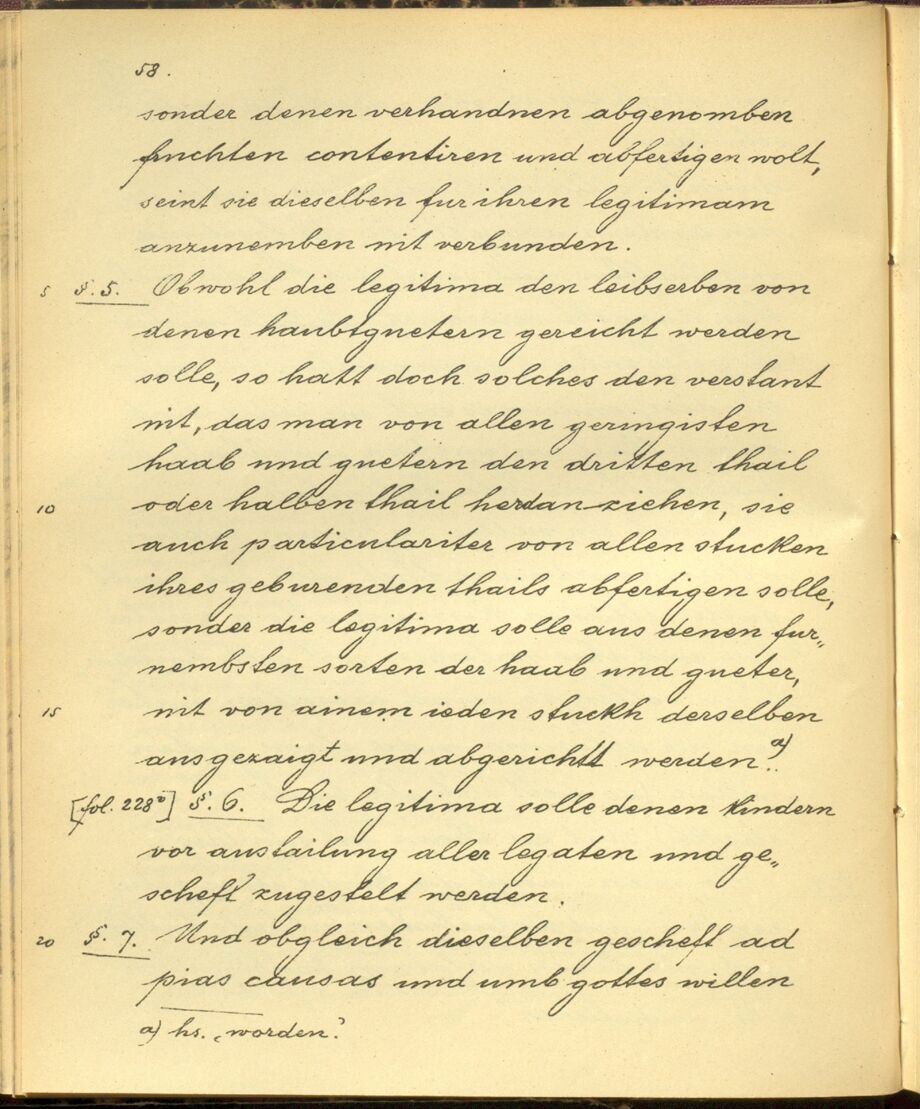 58.
sonder denen verhandnen abgenomben
fruchten contentiren und abfertigen wolt,
seint sie dieselben fur ihren legitimam
anzunemben nit verbunden.
5 §. 5. Obwohl die legitima den leibserben von
denen haubtguetern gereicht werden
solle, so hatt doch solches den verstant
nit, das man von allen geringisten
haab und guetern den dritten thail
10 oder halben thail herdan ziehen, sie
auch particulariter von allen stucken
ihres geburenden thails abfertigen solle,
sonder die legitima solle aus denen fur„
nembsten sorten der haab und gueter,
15 nit von ainem ieden stuckh derselben
ausgezaigt und abgerichtt werden a).
[fol. 228b] §. 6. Die legitima solle denen kindern
vor austailung aller legaten und ge„
scheft zugestelt werden.
20 §. 7. Und obgleich dieselben gescheft ad
pias causas und umb gottes willen
a) hs. ‚worden‘.